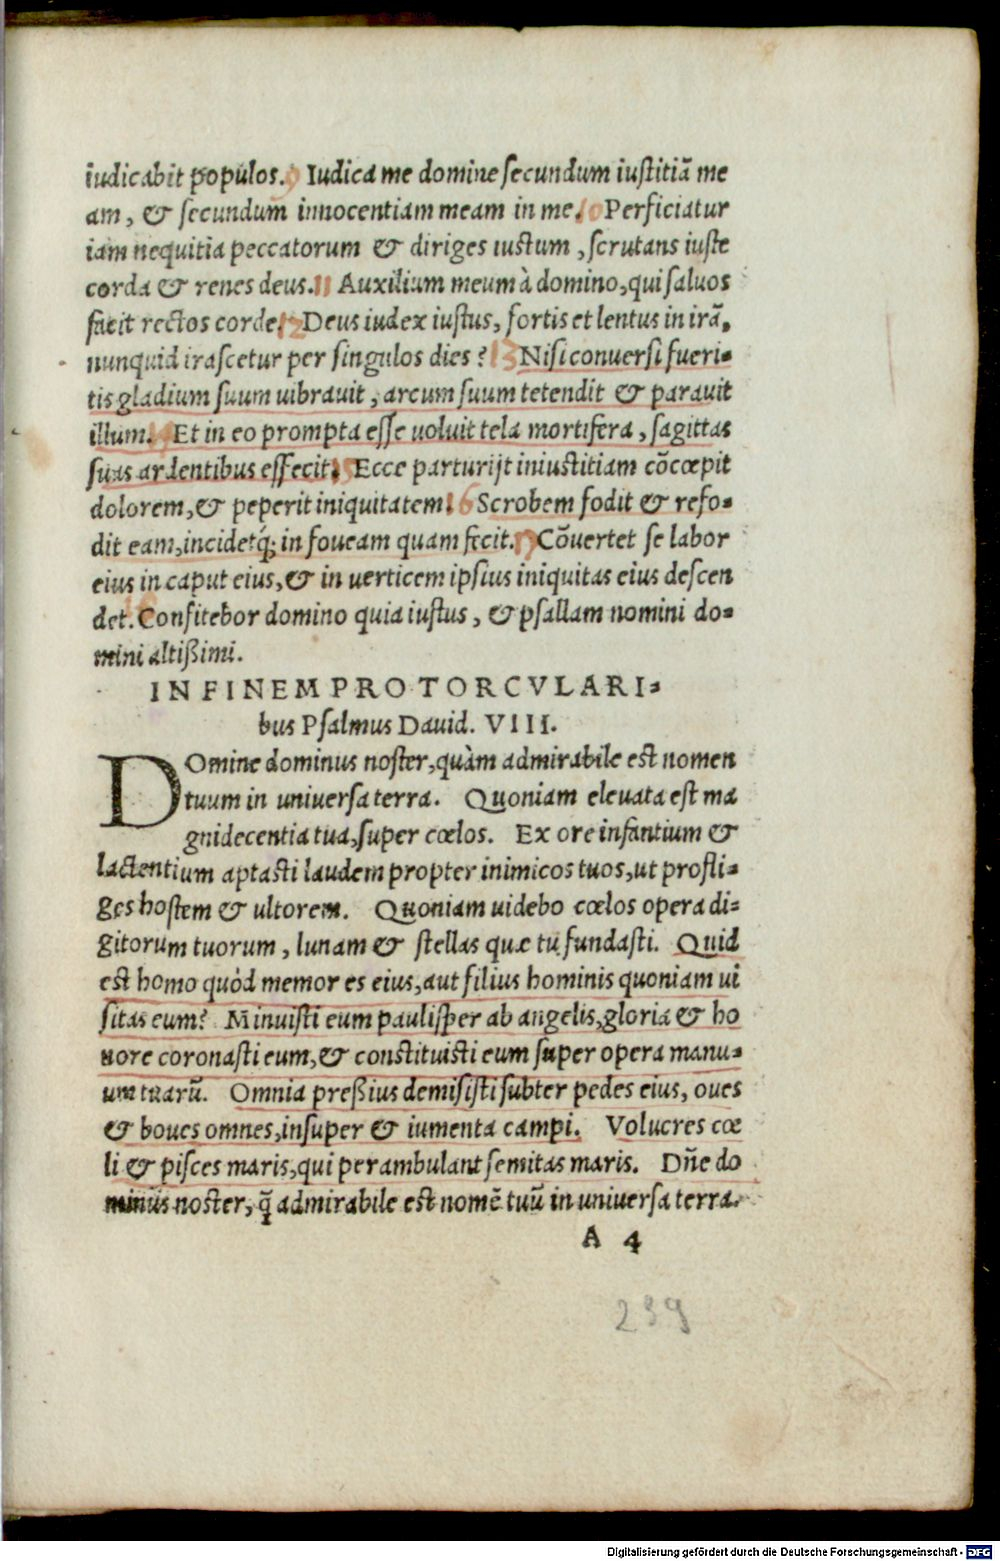 iudicabit populos. 9 Iudica me domine secundum iustitiā me
am, & secundum innocentiam meam in me. 10 Perficiatur
iam nequitia peccatorum & diriges iustum, scrutans iuste
corda & renes deus. 11 Auxilium meum à domino, qui saluos
facit rectos corde. 12 Deus iudex iustus, fortis et lentus in irā,
nunquid irascetur per singulos dies? 13 Nisi conuersi fueri-
tis gladium suum uibrauit, arcum suum tetendit & parauit
illum. 14 Et in eo prompta esse uoluit tela mortifera, sagittas
suas ardentibus effecit. 15 Ecce parturijt iniustitiam cōcœpit
dolorem, & peperit iniquitatem. 16 Scrobem fodit & refo-
dit eam, incidetq́; in foueam quam fecit. 17 Cōuertet se labor
eius in caput eius, & in uerticem ipsius iniquitas eius descen
det. 18 Confitebor domino quia iustus, & psallam nomini do-
mini altißimi.
IN FINEM PRO TORCVLARI-
bus Psalmus Dauid. VIII.
DOmine dominus noster, quàm admirabile est nomen
tuum in uniuersa terra. Quoniam eleuata est ma
gnidecentia tua, super cœlos. Ex ore infantium &
lactentium aptasti laudem propter inimicos tuos, ut profli-
ges hostem & ultorem. Quoniam uidebo cœlos opera di-
gitorum tuorum, lunam & stellas quæ tu fundasti. Quid
est homo quòd memor es eius, aut filius hominis quoniam ui
sitas eum? Minuisti eum paulisper ab angelis, gloria & ho
nore coronasti eum, & constituisti eum super opera manu-
um tuarū. Omnia preßius demisisti subter pedes eius, oues
& boues omnes, insuper & iumenta campi. Volucres cœ
li & pisces maris, qui perambulant semitas maris. Dn̄e do
minus noster, q̄ admirabile est nomē tuū in uniuersa terra.
A 4
239
Digitalisierung gefördert durch die Deutsche Forschungsgemeinschaft - DFG